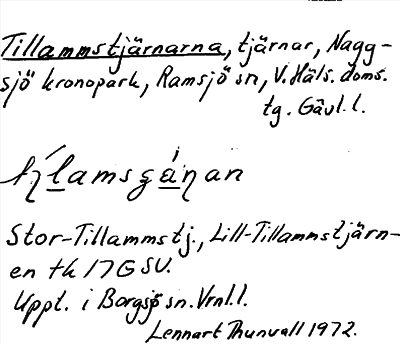 Tillammstjärnarna, tjärnar, Nagg-
sjö kronopark, Ramsjö sn, V. Häls. doms.
tg. Gävl. l.
Stor-Tillammstj., Lill-Tillammstjärn-
en tk 17G SV.
Uppt. i Borgsjö sn. Vrnl. l.
Lennart Thunvall 1972.